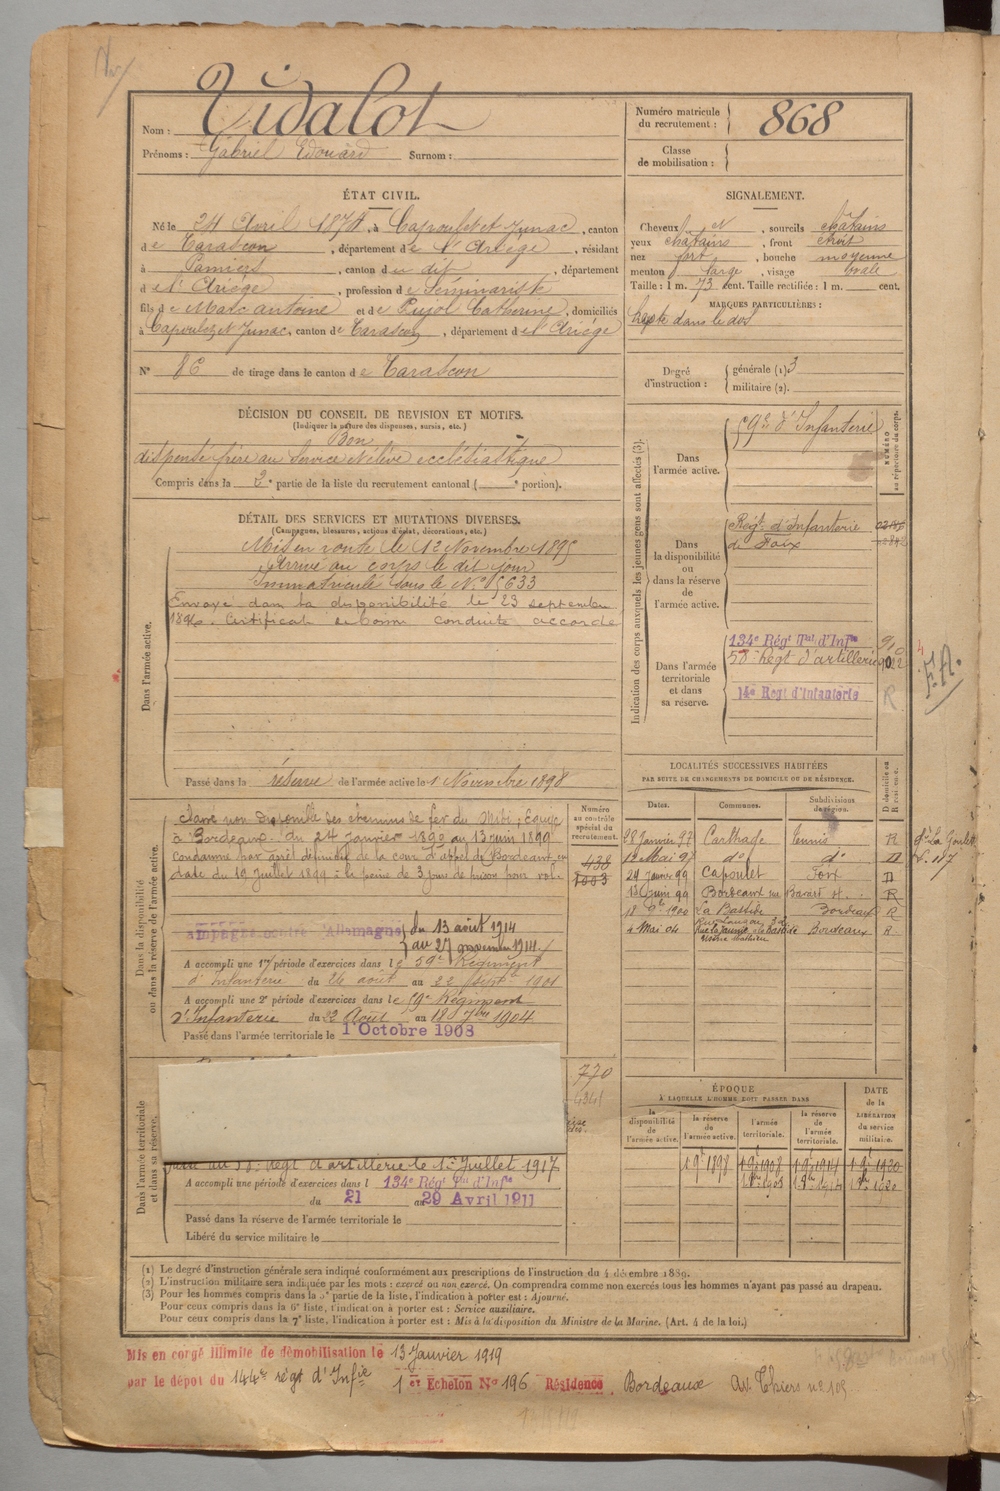 Nom : Vidalot
Prénoms : Gabriel Edouard Surnom :
Numéro matricule du recrutement : 868
Classe de mobilisation :
ÉTAT CIVIL.
Né le 24 Avril 1874, à Capoulet et Junac, canton
de Tarascon, département de l'Ariège, résidant
à Pamiers, canton du dit, département
de l'Ariège, profession de Séminariste
fils de Marc antoine et de Pujol Catherine, domiciliés
à Capoulet et Junac, canton de Tarascon, département de l'Ariège
N° 86 de tirage dans le canton de Tarascon
SIGNALEMENT.
Cheveux et, sourcils châtains
yeux châtains, front étroit
nez fort, bouche moyenne
menton large, visage ovale
Taille : 1 m. 73 cent. Taille rectifiée : 1 m. cent.
MARQUES PARTICULIÈRES :
dans le dos
Degré d'instruction : générale (1) 3
militaire (2).
DÉCISION DU CONSEIL DE REVISION ET MOTIFS.
(Indiquer la nature des dispenses, sursis, etc.)
Bon
dispensé frère au Service élève ecclésiastique
Compris dans la 2e partie de la liste du recrutement cantonal ( e portion).
DÉTAIL DES SERVICES ET MUTATIONS DIVERSES.
(Campagnes, blessures, actions d'éclat, décorations, etc.)
Dans l'armée active.
Mis en route le 12 Novembre 1895
Arrivé au corps le dit jour
Immatriculé sous le N° 5633
Envoyé dans la disponibilité le 23 septembre
1896. Certificat de bonne conduite accordé
Passé dans la réserve de l'armée active le 1 Novembre 1898
Indication des corps auxquels les jeunes gens sont affectés (3).
NUMÉRO au répertoire du corps.
Dans l'armée active.
59e d'Infanterie
Dans la disponibilité ou dans la réserve de l'armée active.
Régt d'Infanterie
de Foix
Dans l'armée territoriale et dans sa réserve.
134e Régt Tal d'Infie
58e Régt d'artillerie
14e Regt d'Infanterie
R
F.A.
LOCALITÉS SUCCESSIVES HABITÉES
PAR SUITE DE CHANGEMENTS DE DOMICILE OU DE RÉSIDENCE.
Dates. Communes. Subdivisions de région. D domicile ou R résidence.
28 Janvier 97 Carthage Tunnis R
12 Mai 97 do do D
29 Janvier 99 Capoulet Foix D
13 Juin 99 Bordeaux R
18 9bre 1900 La Bastide Bordeaux R
4 Mai 04 Bordeaux R
Dans la disponibilité ou dans la réserve de l'armée active.
Numéro au contrôle spécial du recrutement.
438
1003
Classé non disponible des chemins de fer du Midi, Equipe
à Bordeaux. du 24 Janvier 1899 au 13 juin 1899
Condamné par arrêt définitif de la cour d'appel de Bordeaux en
date du 19 Juillet 1899 à la peine de 3 jours de prison pour vol.
ampagne contre l'Allemagne du 13 août 1914
au 27 novembre 1914
A accompli une 1re période d'exercices dans le 59e Régiment
d'Infanterie du 26 août au 22 Sept 1901
A accompli une 2e période d'exercices dans le 59e Régiment
d'Infanterie du 22 Août au 18 7bre 1904
Passé dans l'armée territoriale le 1 Octobre 1908
Dans l'armée territoriale et dans sa réserve.
770
Passé au 58e Régt d'artillerie le 1er Juillet 1917
A accompli une période d'exercices dans l 134e Régt Tal d'Infie
du 21 au 29 Avril 1911
Passé dans la réserve de l'armée territoriale le
Libéré du service militaire le
ÉPOQUE
À LAQUELLE L'HOMME DOIT PASSER DANS
la disponibilité de l'armée active. la réserve de l'armée active. l'armée territoriale. la réserve de l'armée territoriale.
DATE de la LIBÉRATION du service militaire.
1 9b 1898 1 9b 1908 1 9b 1914 1 9b 1920
(1) Le degré d'instruction générale sera indiqué conformément aux prescriptions de l'instruction du 4 décembre 1889.
(2) L'instruction militaire sera indiquée par les mots : exercé ou non exercé. On comprendra comme non exercés tous les hommes n'ayant pas passé au drapeau.
(3) Pour les hommes compris dans la 5e partie de la liste, l'indication à porter est : Ajourné.
Pour ceux compris dans la 6e liste, l'indication à porter est : Service auxiliaire.
Pour ceux compris dans la 7e liste, l'indication à porter est : Mis à la disposition du Ministre de la Marine. (Art. 4 de la loi.)
Mis en congé illimité de démobilisation le 13 Janvier 1919
par le dépôt du 144e régt d'Infie 1er Echelon No 196 Résidence Bordeaux Av. Thiers no 109